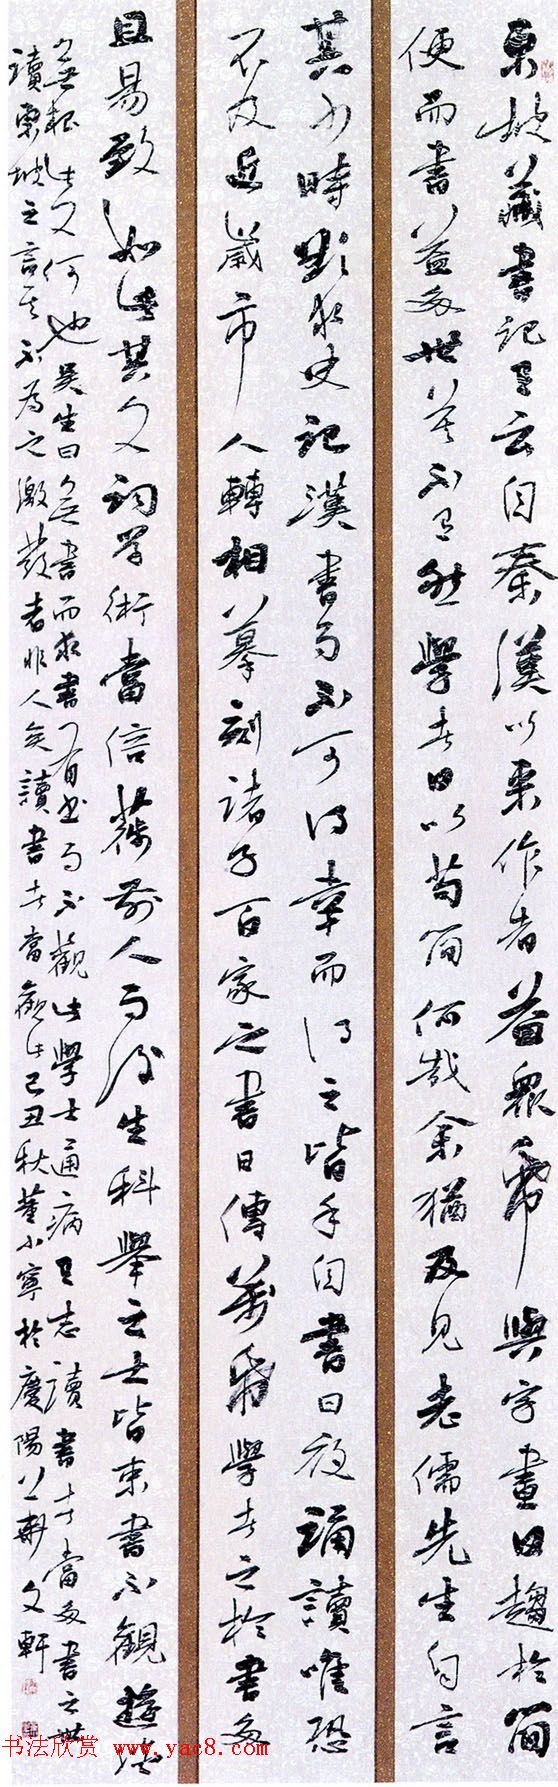 東坡藏書記有云自秦漢以來作者益眾紙與字畫日趨於簡
便而書益多世莫不有然學者日以苟簡何哉余猶及見老儒先生自言
其少時欲求史記漢書而不可得幸而得之皆手自書日夜誦讀唯恐
不及近歲市人轉相摹刻諸子百家之書日傳萬紙學者之於書多
且易致如此其文詞學術當倍蓰前人而後生科舉之士皆束書不觀遊談
無根此又何也吳生曰無書而求書有書而不觀此學士通病有志讀書者當多書之世
讀東坡之言其不為之激發者非人矣讀書者當觀此己丑秋董小寧於慶陽文軒
书法欣赏 www.yac8.com